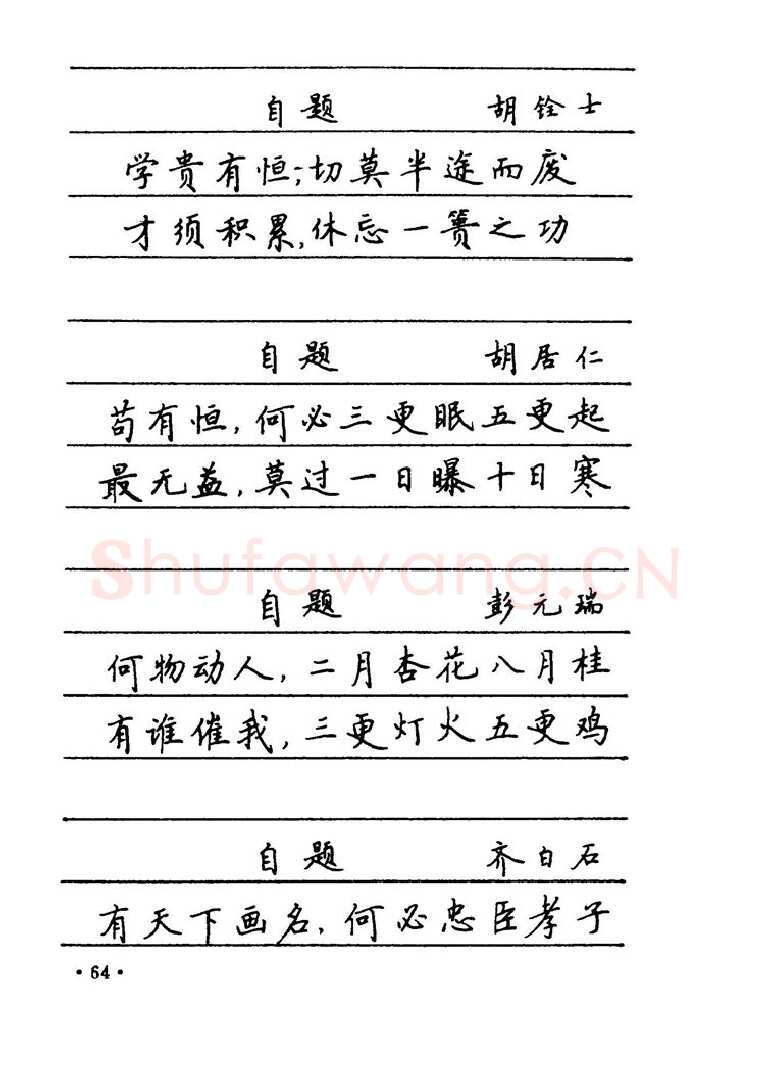 自题 胡铨士
学贵有恒;切莫半途而废
才须积累,休忘一篑之功
自题 胡居仁
苟有恒,何必三更眠五更起
最无益,莫过一日曝十日寒
Shufawang.CN
自题 彭元瑞
何物动人,二月杏花八月桂
有谁催我,三更灯火五更鸡
自题 齐白石
有天下画名,何必忠臣孝子
·64·